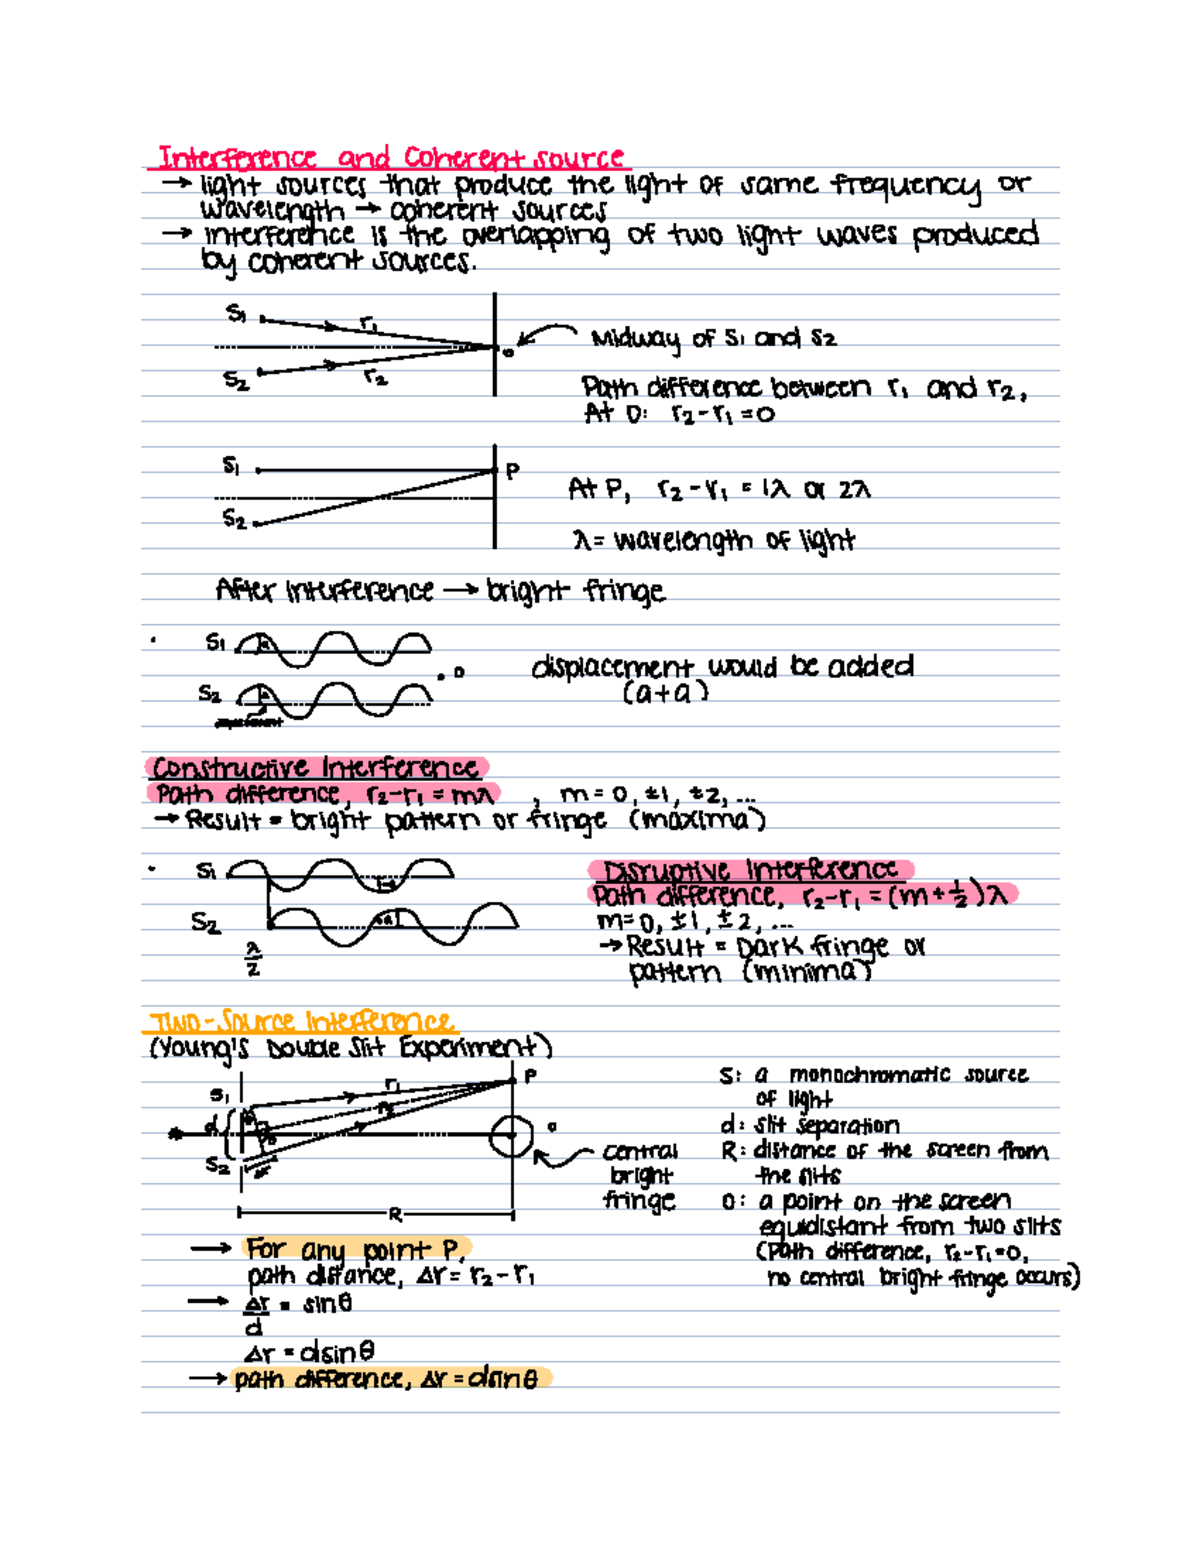 Interference and Coherent source
→ light sources that produce the light of same frequency or
wavelength → coherent sources
→ interference is the overlapping of two light waves produced
by coherent sources.
S1
r1
o
Midway of S1 and S2
S2
r2
Path difference between r1 and r2,
At O: r2-r1 = 0
S1
P
At P, r2-r1 = 1λ or 2λ
S2
λ = wavelength of light
After interference → bright fringe
S1
S2
a
a
. o
displacement would be added
(a+a)
Constructive Interference
Path difference, r2-r1 = mλ , m = 0, ±1, ±2, ...
→ Result = bright pattern or fringe (maxima)
S1
S2
λ/2
Disruptive Interference
Path difference, r2-r1 = (m+1/2)λ
m=0, ±1, ±2, ...
→ Result = Dark fringe or
pattern (minima)
Two-Source Interference
(Young's Double Slit Experiment)
S1
r1
P
r2
d
S2
o
R
central
bright
fringe
S: a monochromatic source
of light
d: slit separation
R: distance of the screen from
the slits
O: a point on the screen
equidistant from two slits
(Path difference, r2-r1=0,
no central bright fringe occurs)
→ For any point P,
path distance, Δr = r2-r1
→ Δr/d = sinθ
Δr = dsinθ
→ path difference, Δr = dsinθ